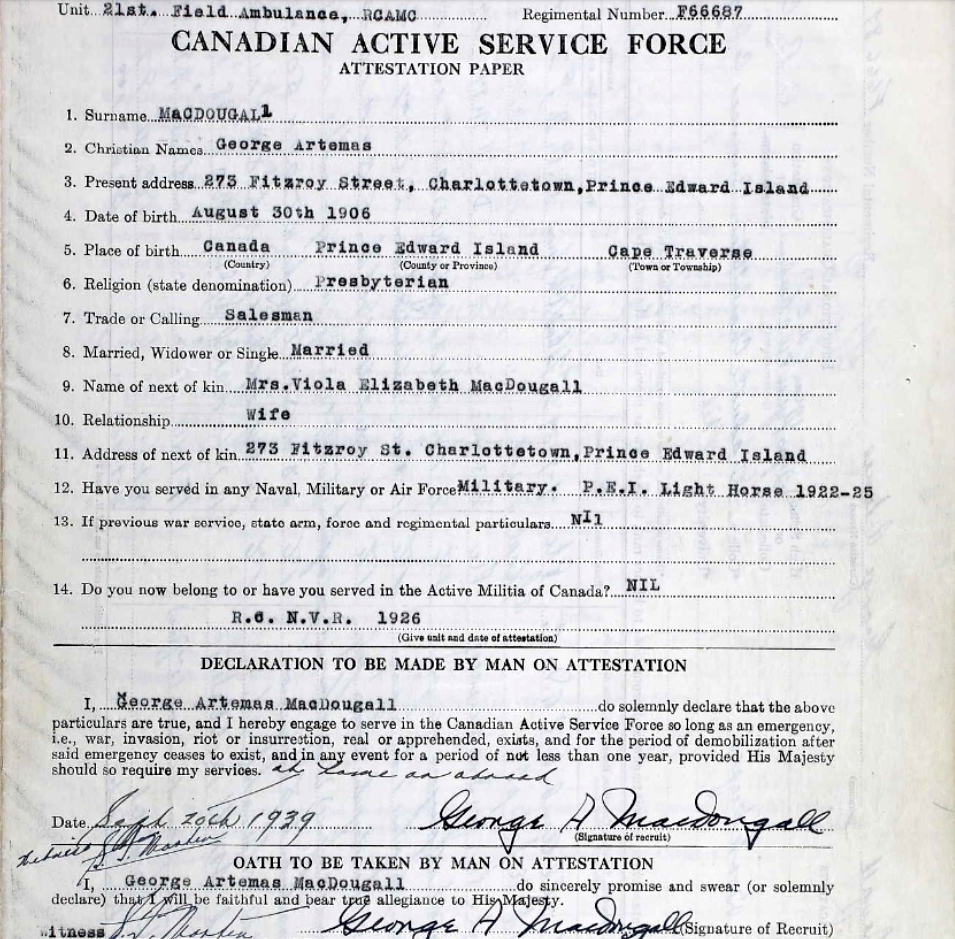 Unit 21st. Field Ambulance, RCAMC Regimental Number F66687
CANADIAN ACTIVE SERVICE FORCE
ATTESTATION PAPER
1. Surname MacDOUGALl
2. Christian Names George Artemas
3. Present address 273 Fitzroy Street, Charlottetown,Prince Edward Island
4. Date of birth August 30th 1906
5. Place of birth Canada Prince Edward Island Cape Traverse
(Country) (County or Province) (Town or Township)
6. Religion (state denomination) Presbyterian
7. Trade or Calling Salesman
8. Married, Widower or Single Married
9. Name of next of kin Mrs.Viola Elizabeth MacDougall
10. Relationship Wife
11. Address of next of kin 273 Fitzroy St. Charlottetown,Prince Edward Island
12. Have you served in any Naval, Military or Air Force Military. P.E.I. Light Horse 1922-25
13. If previous war service, state arm, force and regimental particulars NIl
14. Do you now belong to or have you served in the Active Militia of Canada? NIL
R.C. N.V.R. 1926
(Give unit and date of attestation)
DECLARATION TO BE MADE BY MAN ON ATTESTATION
I, George Artemas MacDougall do solemnly declare that the above
particulars are true, and I hereby engage to serve in the Canadian Active Service Force so long as an emergency,
i.e., war, invasion, riot or insurrection, real or apprehended, exists, and for the period of demobilization after
said emergency ceases to exist, and in any event for a period of not less than one year, provided His Majesty
should so require my services. at home or abroad
Date Sept 20th 1939 George A Macdougall
(Signature of recruit)
Witness
OATH TO BE TAKEN BY MAN ON ATTESTATION
I, George Artemas MacDougall do sincerely promise and swear (or solemnly
declare) that I will be faithful and bear true allegiance to His Majesty.
Witness George A Macdougall (Signature of Recruit)